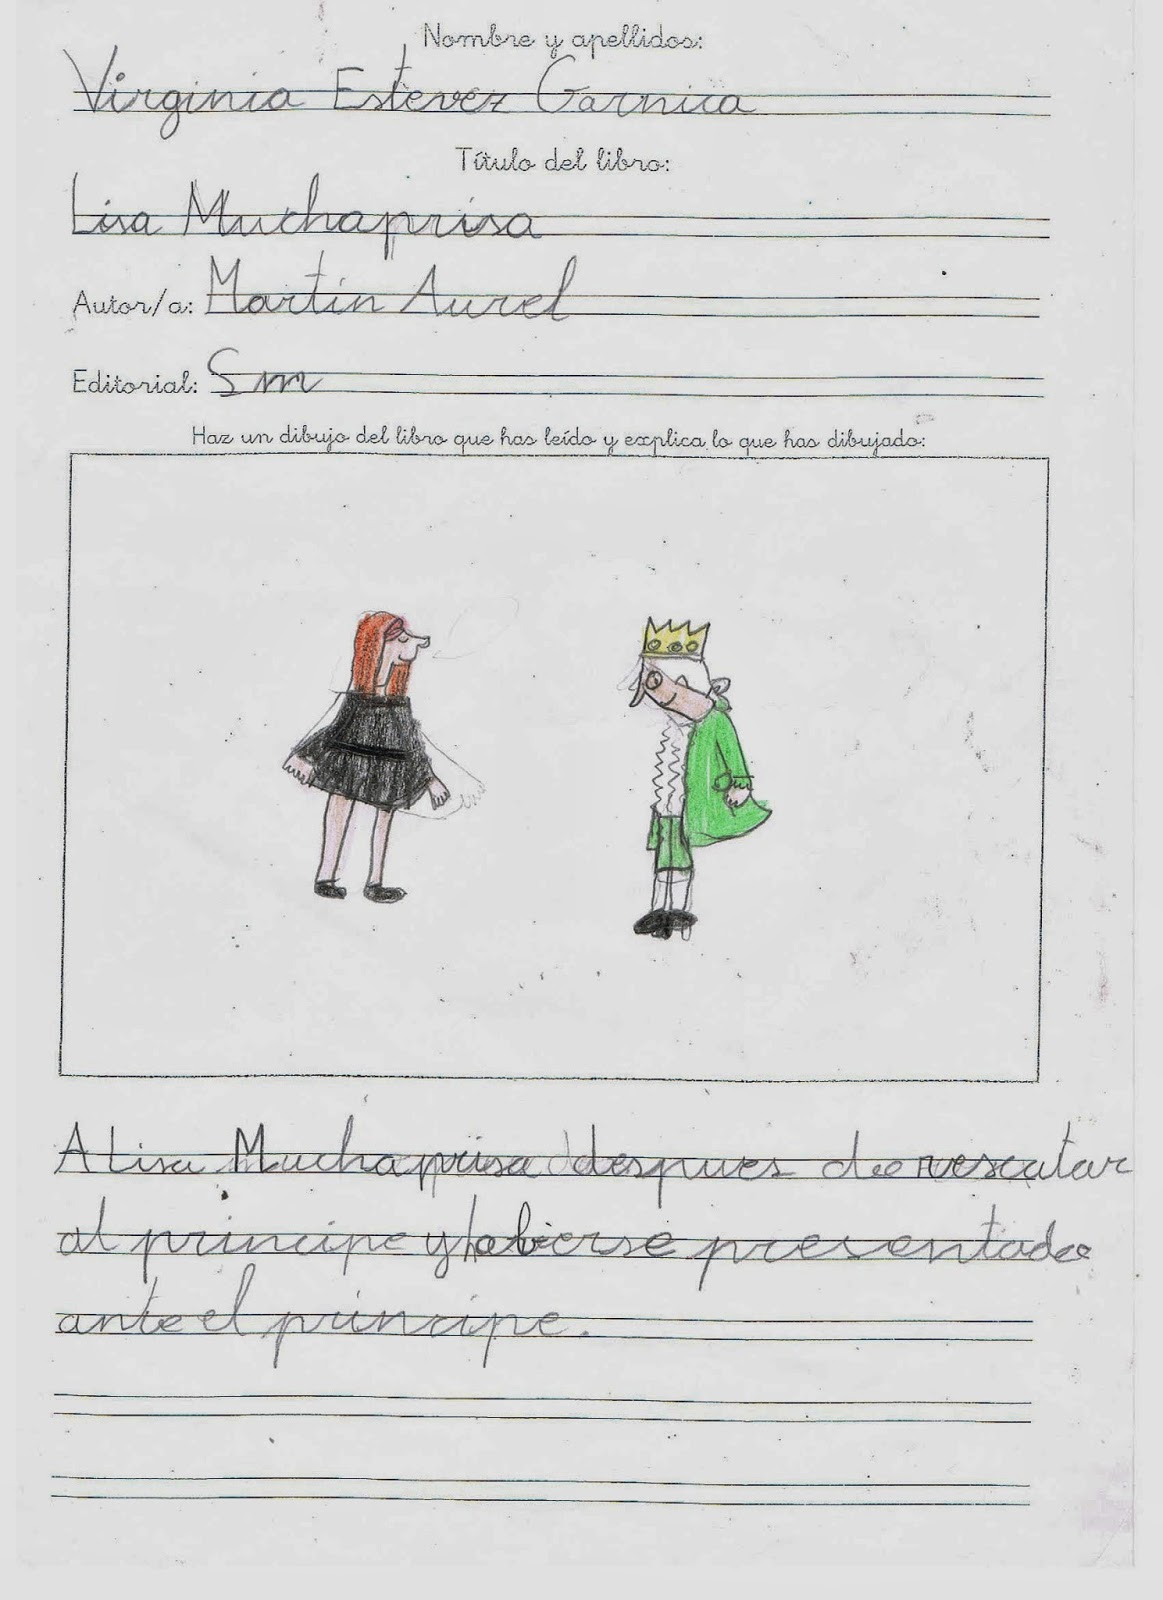 Nombre y apellidos:
Virginia Estevez Garnica
Título del libro:
Lisa Muchaprisa
Autor/a: Martin Aurel
Editorial: Sm
Haz un dibujo del libro que has leído y explica lo que has dibujado:
A Lisa Muchaprisa despues de rescatar
al principe y haberse presentado
ante el principe.